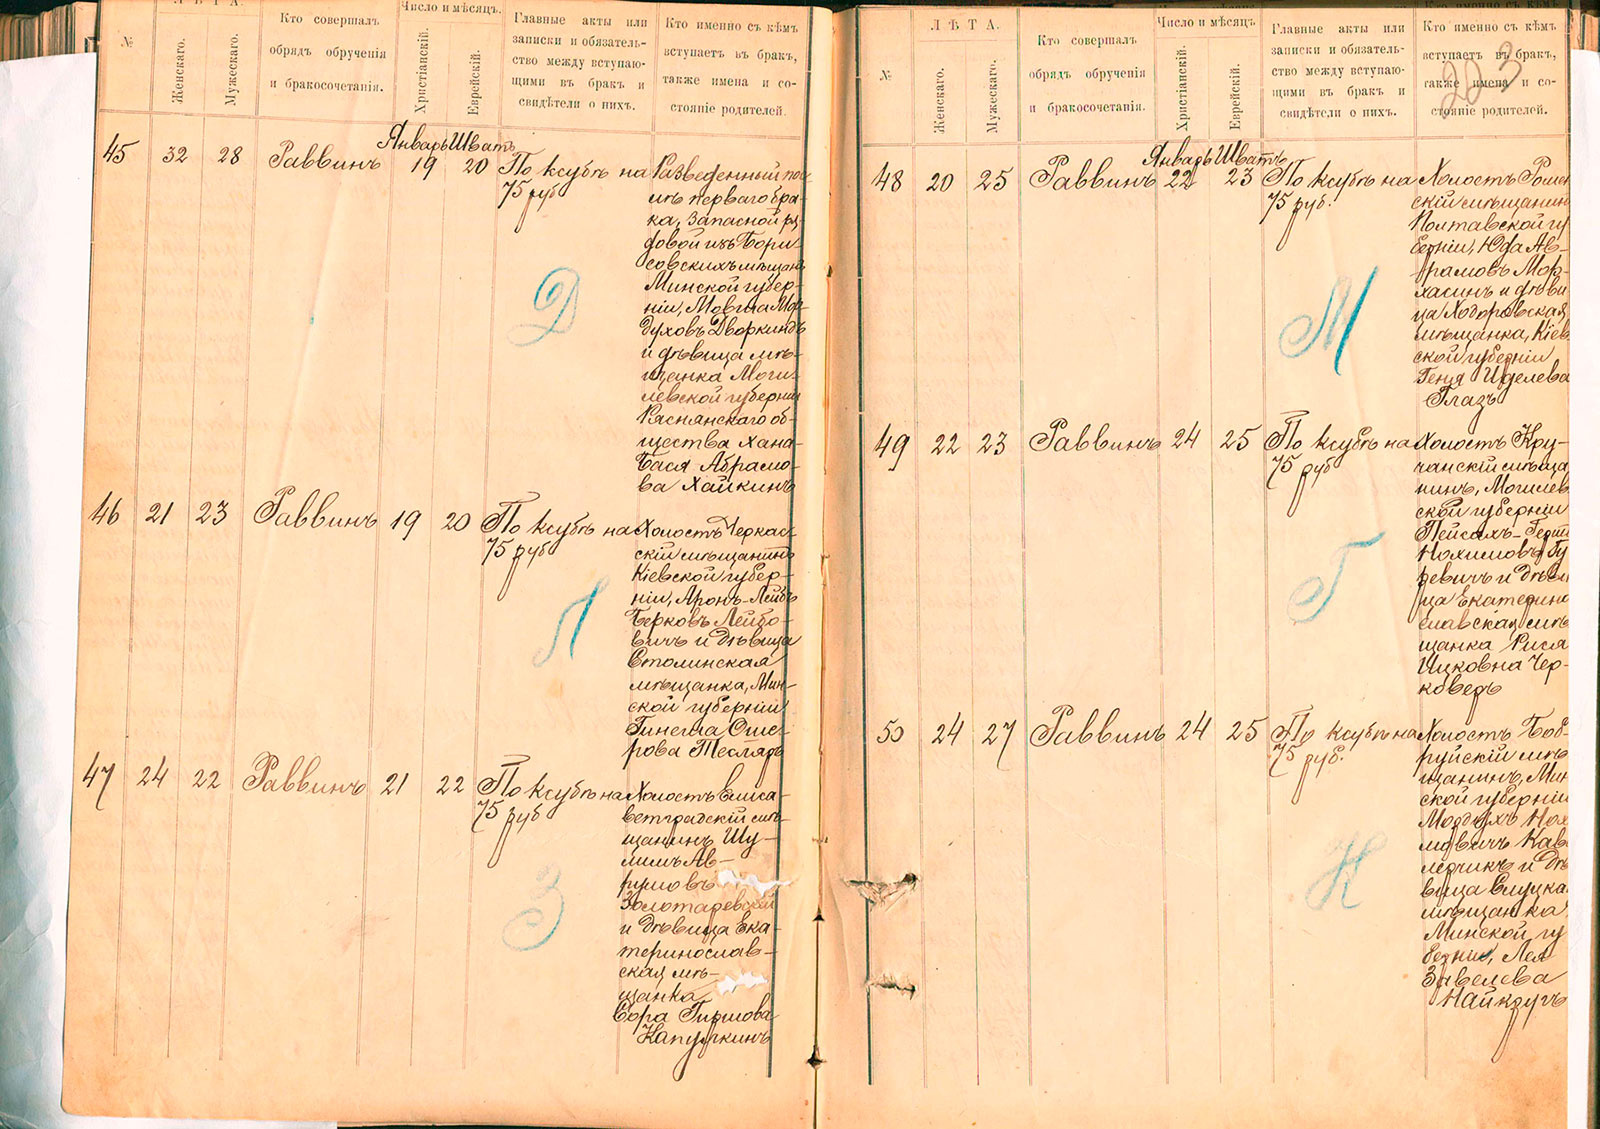 №
ЛѢТА.
Женскаго.
Мужескаго.
Кто совершалъ
обрядъ обрученія
и бракосочетанія.
Число и мѣсяцъ.
Христіанскій.
Еврейскій.
Главные акты или
записки и обязатель-
ство между вступаю-
щими въ бракъ и
свидѣтели о нихъ.
Кто именно съ кѣмъ
вступаетъ въ бракъ,
также имена и со-
стояніе родителей.
Январь Шватъ
45 32 28 Раввинъ 19 20 По ксубѣ на
75 руб
Разведенный по-
слѣ перваго бра-
ка, Запасной ря-
довой изъ Бори-
совскихъ мѣщанъ
Минской губер-
ніи, Мовша Мор-
духовъ Дворкинъ
и дѣвица мѣ-
щанка Моги-
левской губерніи
Ряснянскаго об-
щества Хана-
Бася Абрамо-
ва Хайкинъ
Д
46 21 23 Раввинъ 19 20 По ксубѣ на
75 руб
Холостъ Черкас-
скій мѣщанинъ
Кіевской губер-
ніи, Аронъ-Лейбъ
Берковъ Лейбо-
вичъ и дѣвица
Столинская
мѣщанка, Мин-
ской губерніи
Гинеша Ошe-
рова Тесляръ
Л
47 24 22 Раввинъ 21 22 По ксубѣ на
75 руб
Холостъ Елиса-
ветградскій мѣ-
щанинъ Шу-
лимъ Ав-
румовъ
Золотаревскій
и дѣвица Ека-
теринослав-
ская мѣ-
щанка
Сора Гиршова
Капушкинъ
З
203
№
ЛѢТА.
Женскаго.
Мужескаго.
Кто совершалъ
обрядъ обрученія
и бракосочетанія.
Число и мѣсяцъ.
Христіанскій.
Еврейскій.
Главные акты или
записки и обязатель-
ство между вступаю-
щими въ бракъ и
свидѣтели о нихъ.
Кто именно съ кѣмъ
вступаетъ въ бракъ,
также имена и со-
стояніе родителей.
Январь Шватъ
48 20 25 Раввинъ 22 23 По ксубѣ на
75 руб.
Холостъ Ромен
скій мѣщанин
Полтавской гу
берніи, Юда Ав-
рамовъ Мор-
хасинъ и дѣви
ца Ходоровская
мѣщанка, Кіев
ской губерніи
Геня Иделева
Глазъ
М
49 22 23 Раввинъ 24 25 По ксубѣ на
75 руб
Холостъ Кру-
чанскій мѣща
нинъ, Могилев
ской губерніи
Пейсахъ-Герш
Нохимовъ Гу
ревичъ и дѣви
ца Екатерино
славская мѣ
щанка Рися
Ицковна Чер-
коверъ
Г
50 24 27 Раввинъ 24 25 По ксубѣ на
75 руб.
Холостъ Боб-
руйскій мѣ
щанинъ, Мин
ской губерніи
Мордухъ Нох
мовичъ Кав
лерчикъ и дѣ
вица Слуцка
мѣщанка
Минской гу
берніи, Лея
Завелева
Найкругъ
К